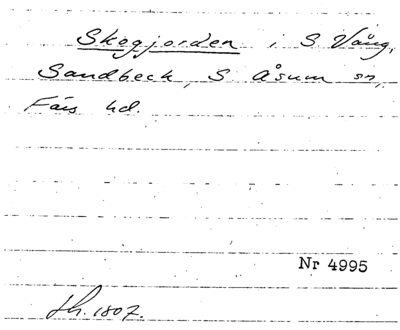 Skogjorden i S. Vång,
Sandbeck, S Åsum sn,
Färs hd.
Nr 4995
sh. 1807.